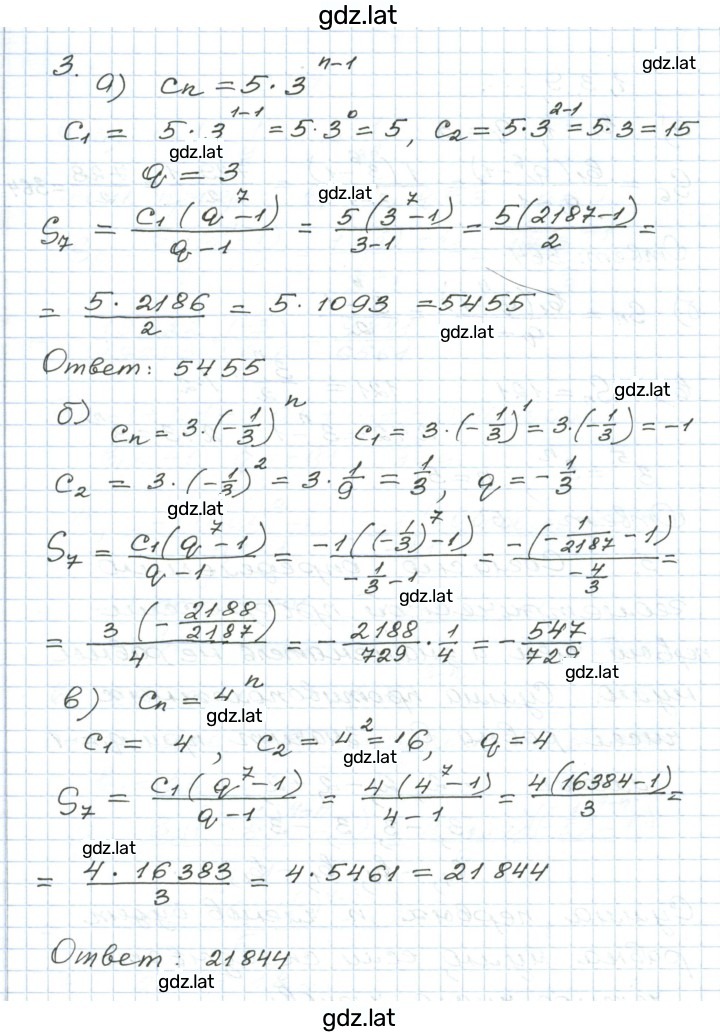 gdz.lat
3. а) cn = 5 · 3^(n-1)
gdz.lat
c1 = 5 · 3^(1-1) = 5 · 3^0 = 5, c2 = 5 · 3^(2-1) = 5 · 3 = 15
gdz.lat
q = 3
gdz.lat
S7 = c1(q^7-1)/(q-1) = 5(3^7-1)/(3-1) = 5(2187-1)/2 =
= 5 · 2186/2 = 5 · 1093 = 5455
gdz.lat
Ответ: 5455
gdz.lat
б) cn = 3 · (-1/3)^n c1 = 3 · (-1/3)^1 = 3 · (-1/3) = -1
c2 = 3 · (-1/3)^2 = 3 · 1/9 = 1/3, q = -1/3
gdz.lat
S7 = c1(q^7-1)/(q-1) = -1((-1/3)^7-1)/(-1/3-1) = -(-1/2187-1)/(-4/3) =
gdz.lat
= 3(-2188/2187)/4 = -2188/729 · 1/4 = -547/729
gdz.lat
в) cn = 4^n
gdz.lat
c1 = 4, c2 = 4^2 = 16, q = 4
gdz.lat
S7 = c1(q^7-1)/(q-1) = 4(4^7-1)/(4-1) = 4(16384-1)/3 =
gdz.lat
= 4 · 16383/3 = 4 · 5461 = 21844
Ответ: 21844
gdz.lat
gdz.lat